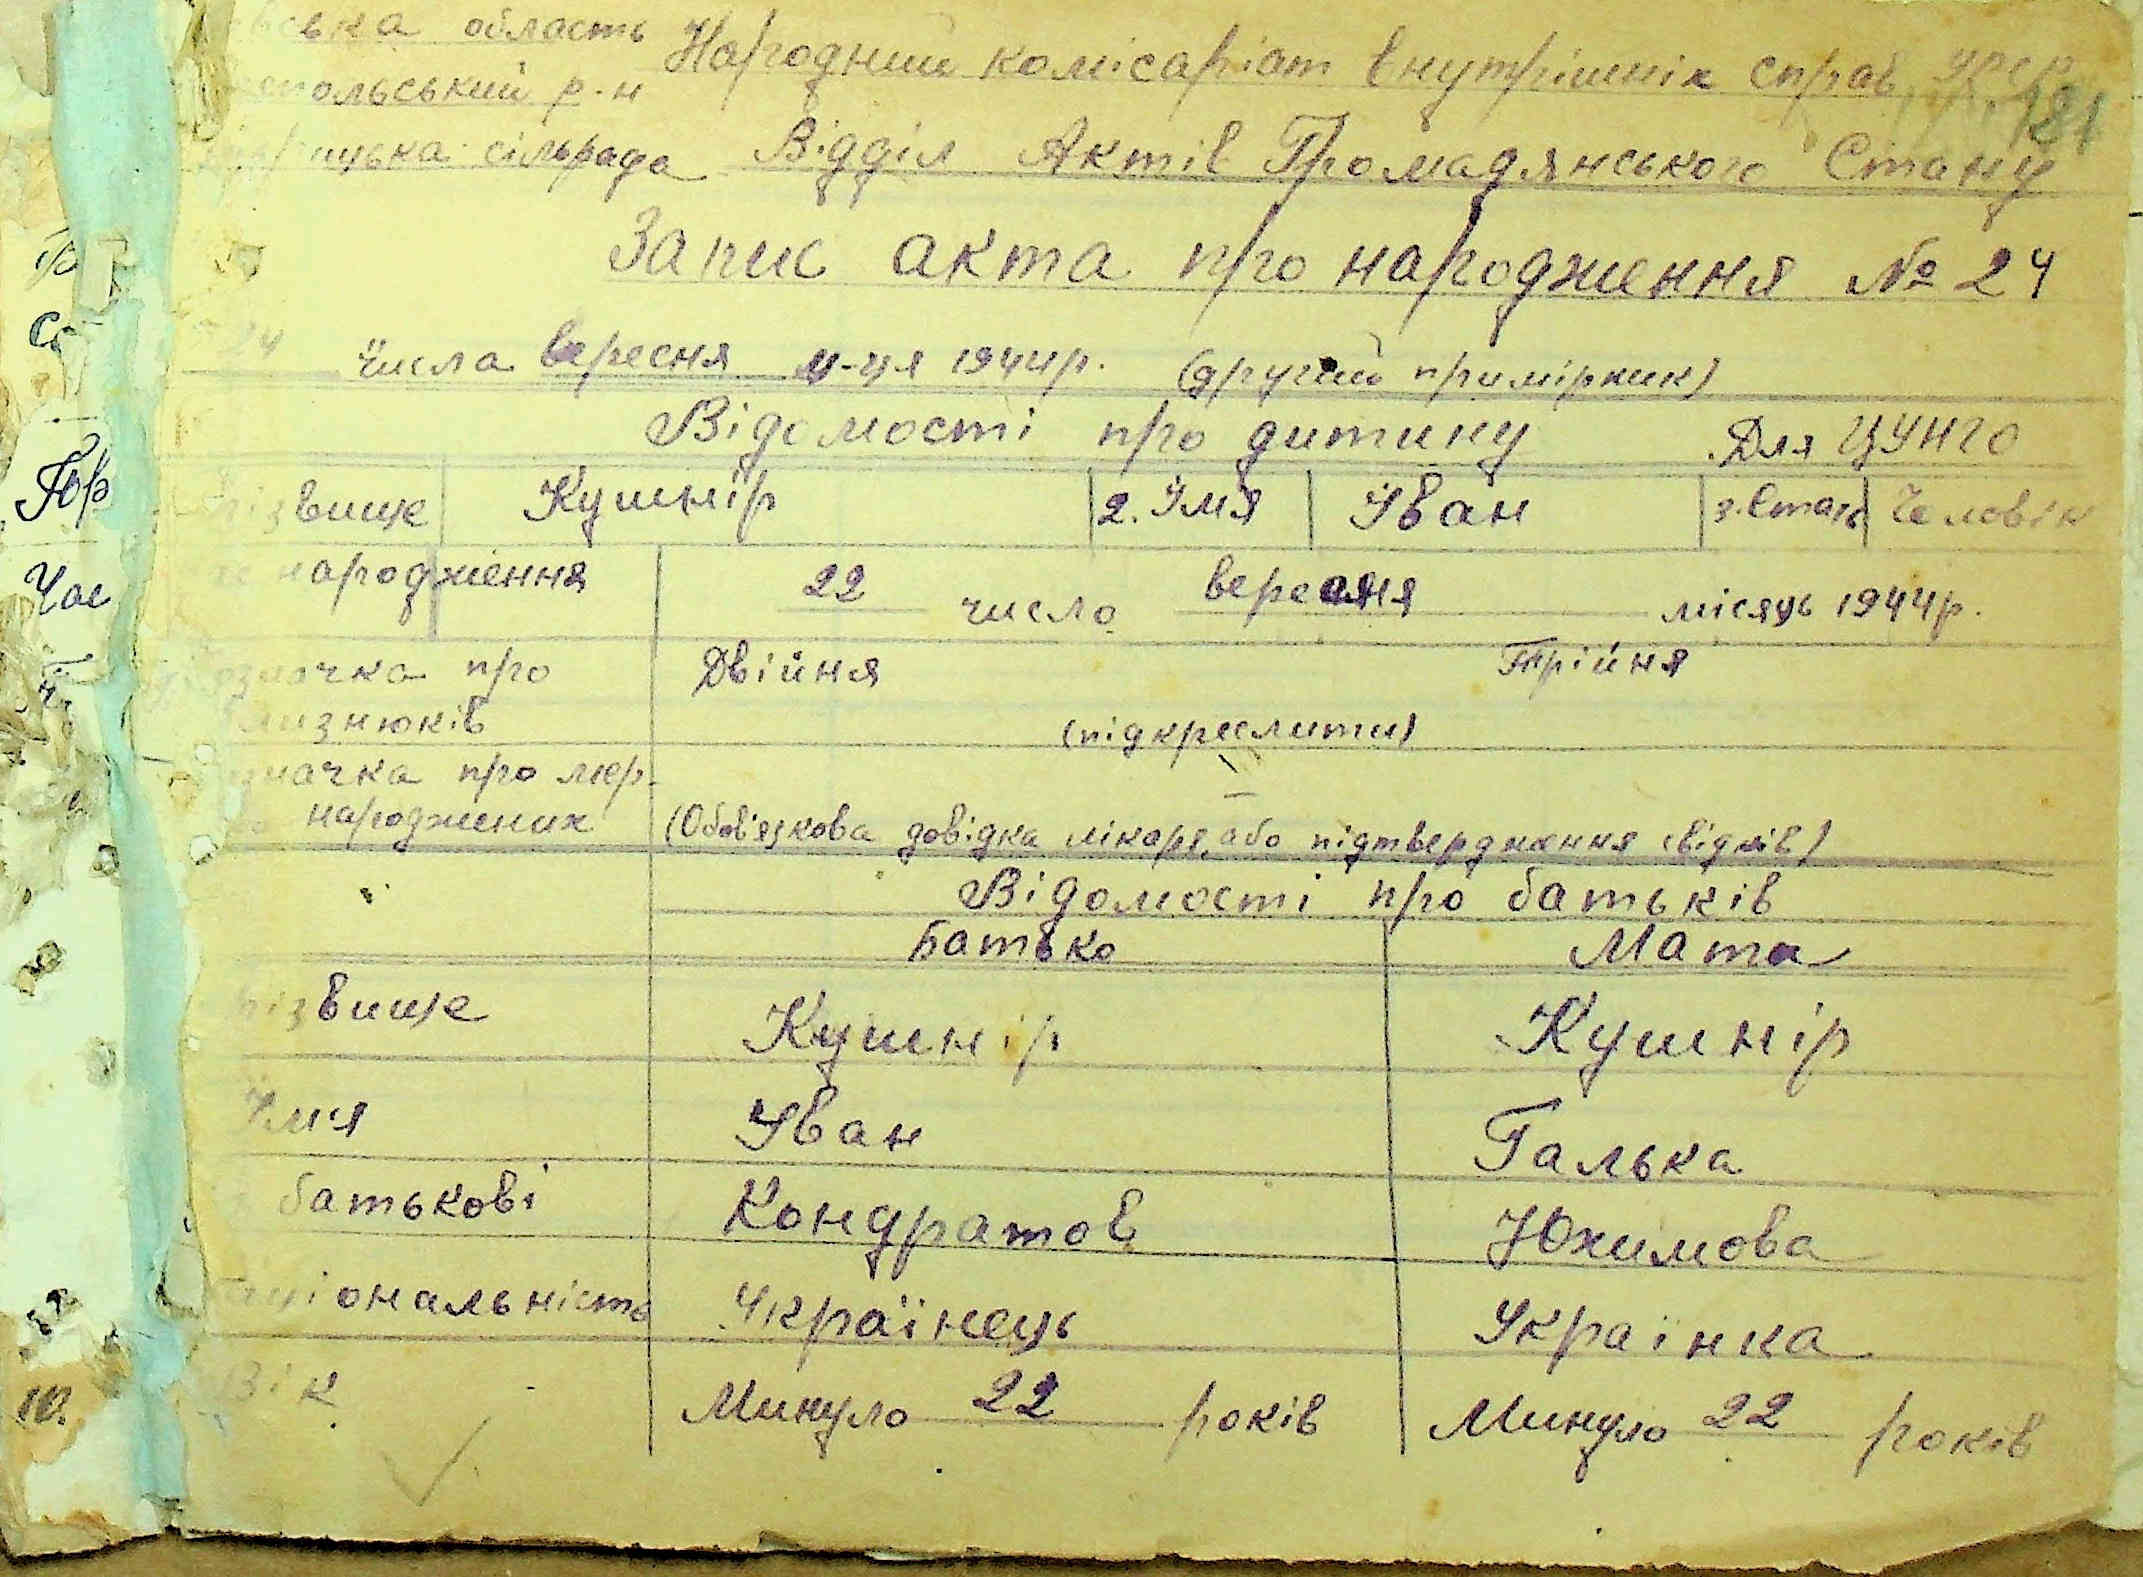 ська область Народний комісаріат внутрішніх справ УРСР
польський р-н 181
ицька сільрада Відділ Актів Громадянського Стану
Запис акта про народження № 24
24 числа вересня м-ця 1944р. (другий примірник)
Відомості про дитину Для ЦУНГО
різвище Кушнір 2. Імя Іван 3. Стать Чоловік
народження 22 число вересня місяць 1944р.
ідзначка про Двійня Трійня
близнюків (підкреслити)
значка про мер-
народжених (Обов'язкова довідка лікаря, або підтвердження свідків)
Відомості про батьків
Батько Мати
різвище Кушнір Кушнір
Імя Іван Галька
батькові Кондратов Юхимова
аціональність Українець Українка
Вік Минуло 22 років Минуло 22 років
Гр
Пор
Час
10.